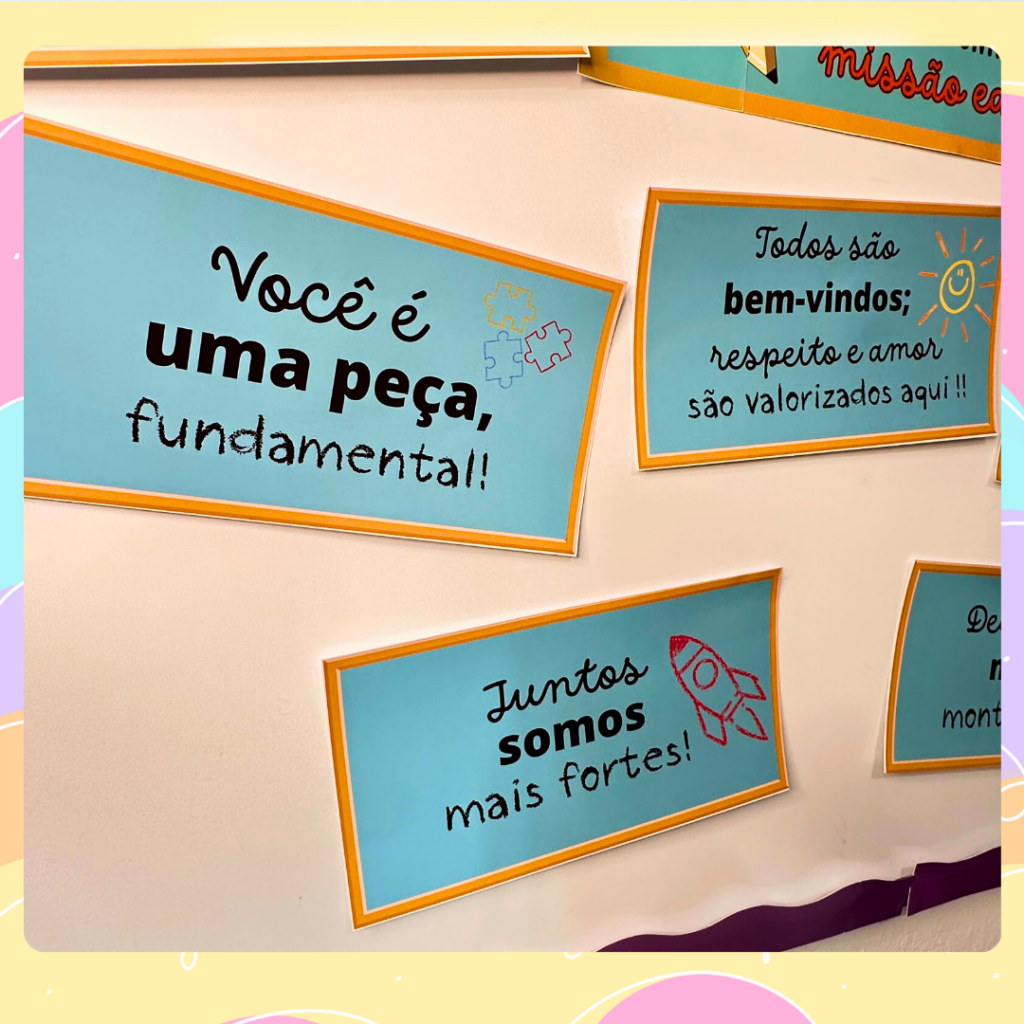 missão
Você é
uma peça,
fundamental!
Todos são
bem-vindos;
respeito e amor
são valorizados aqui !!
Juntos
somos
mais fortes!